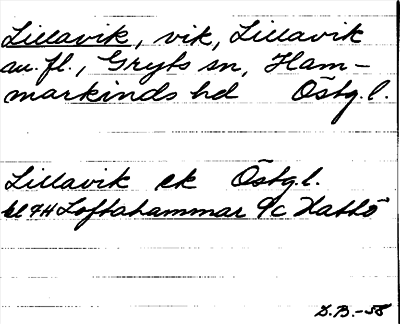 Lillavik, vik, Lillavik
au. fl., Gryts sn, Ham-
markinds hd Östg. l.
Lillavik ek Östg. l.
bl 74 Loftahammar 9/c Hattö
D.B.-58